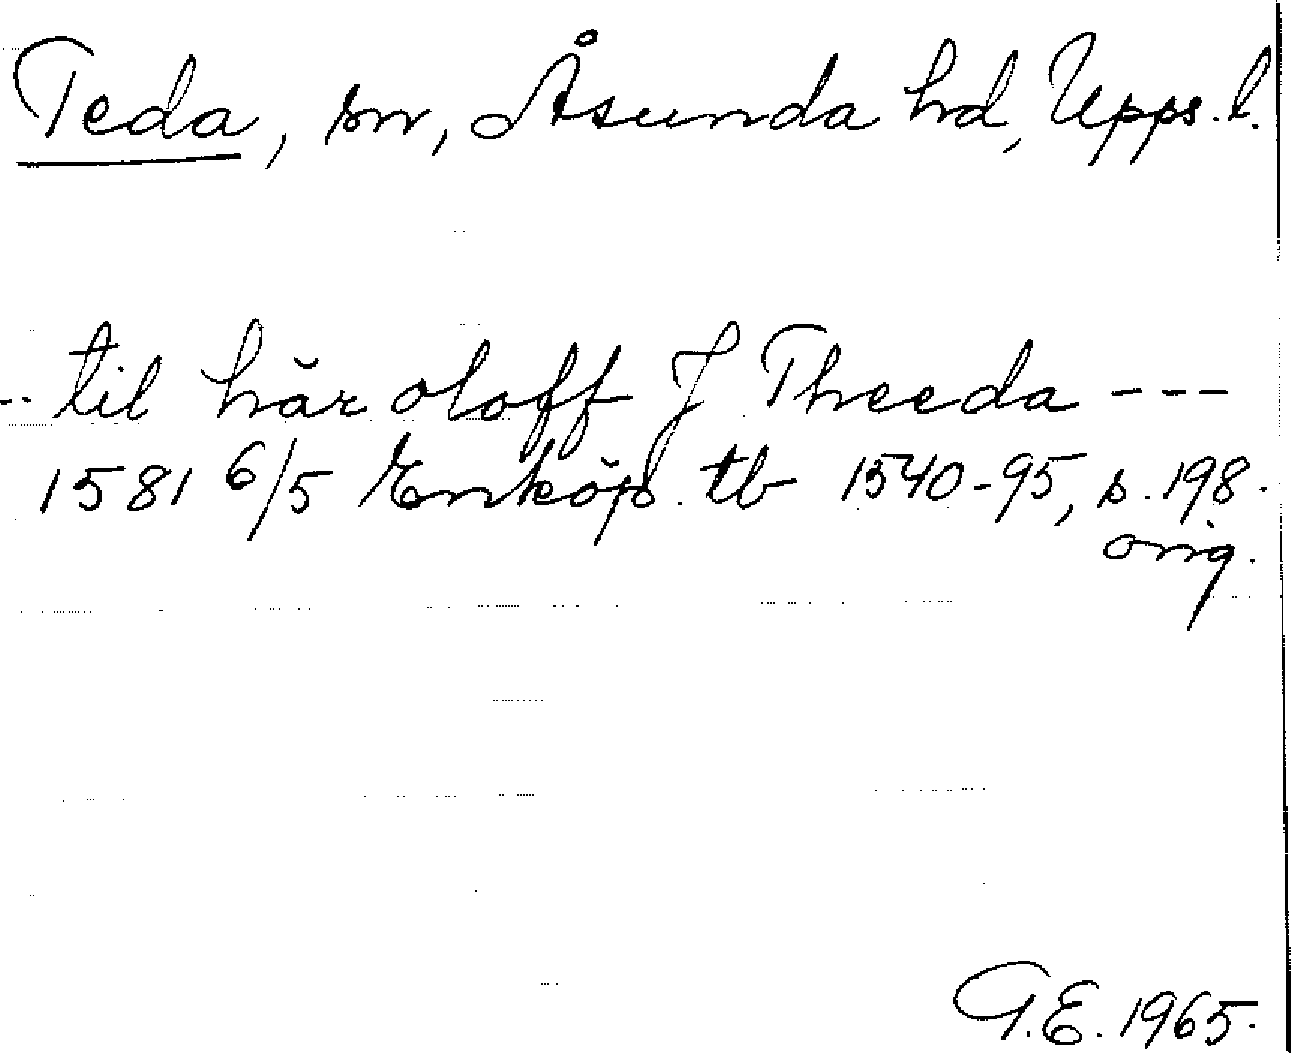 Teda, sn, Åsunda hd, Upps. l.
-- til här oloff J Theeda ---
1581 6/5 Enköp. tb 1540-95, s. 198.
orig.
G.E. 1965.